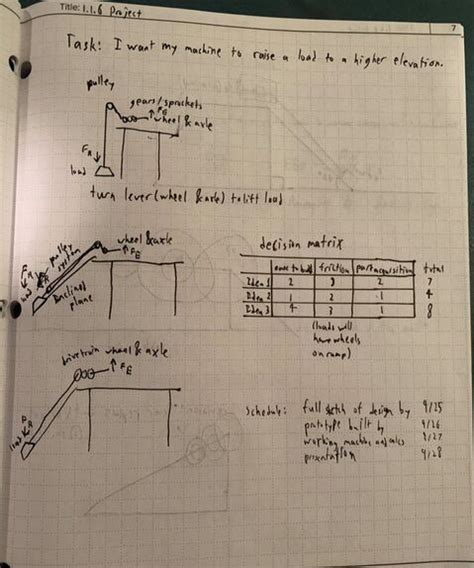 Title: 1.1.6 Project
7
Task: I want my machine to raise a load to a higher elevation.
pulley
gears/sprockets
FE
wheel & axle
FR
load
turn lever (wheel & axle) to lift load
pulley system
wheel & axle
FE
FR
load
Inclined plane
decision matrix
ease to build friction part acquisition total
Idea 1 2 3 2 7
Idea 2 1 2 1 4
Idea 3 4 3 1 8
(loads will
have wheels
on ramp)
drivetrain wheel & axle
FE
load
schedule: full sketch of design by 9/25
prototype built by 9/26
working machine and calcs 9/27
presentation 9/28